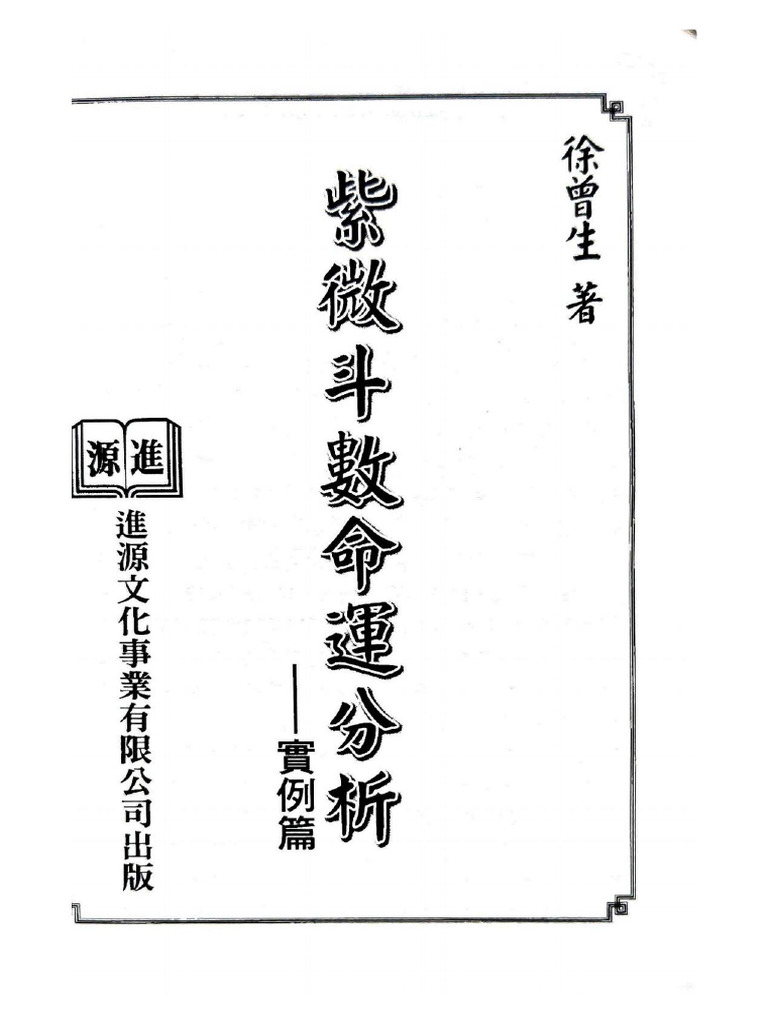 徐曾生 著
紫微斗數命運分析
——實例篇
進源
進源文化事業有限公司出版